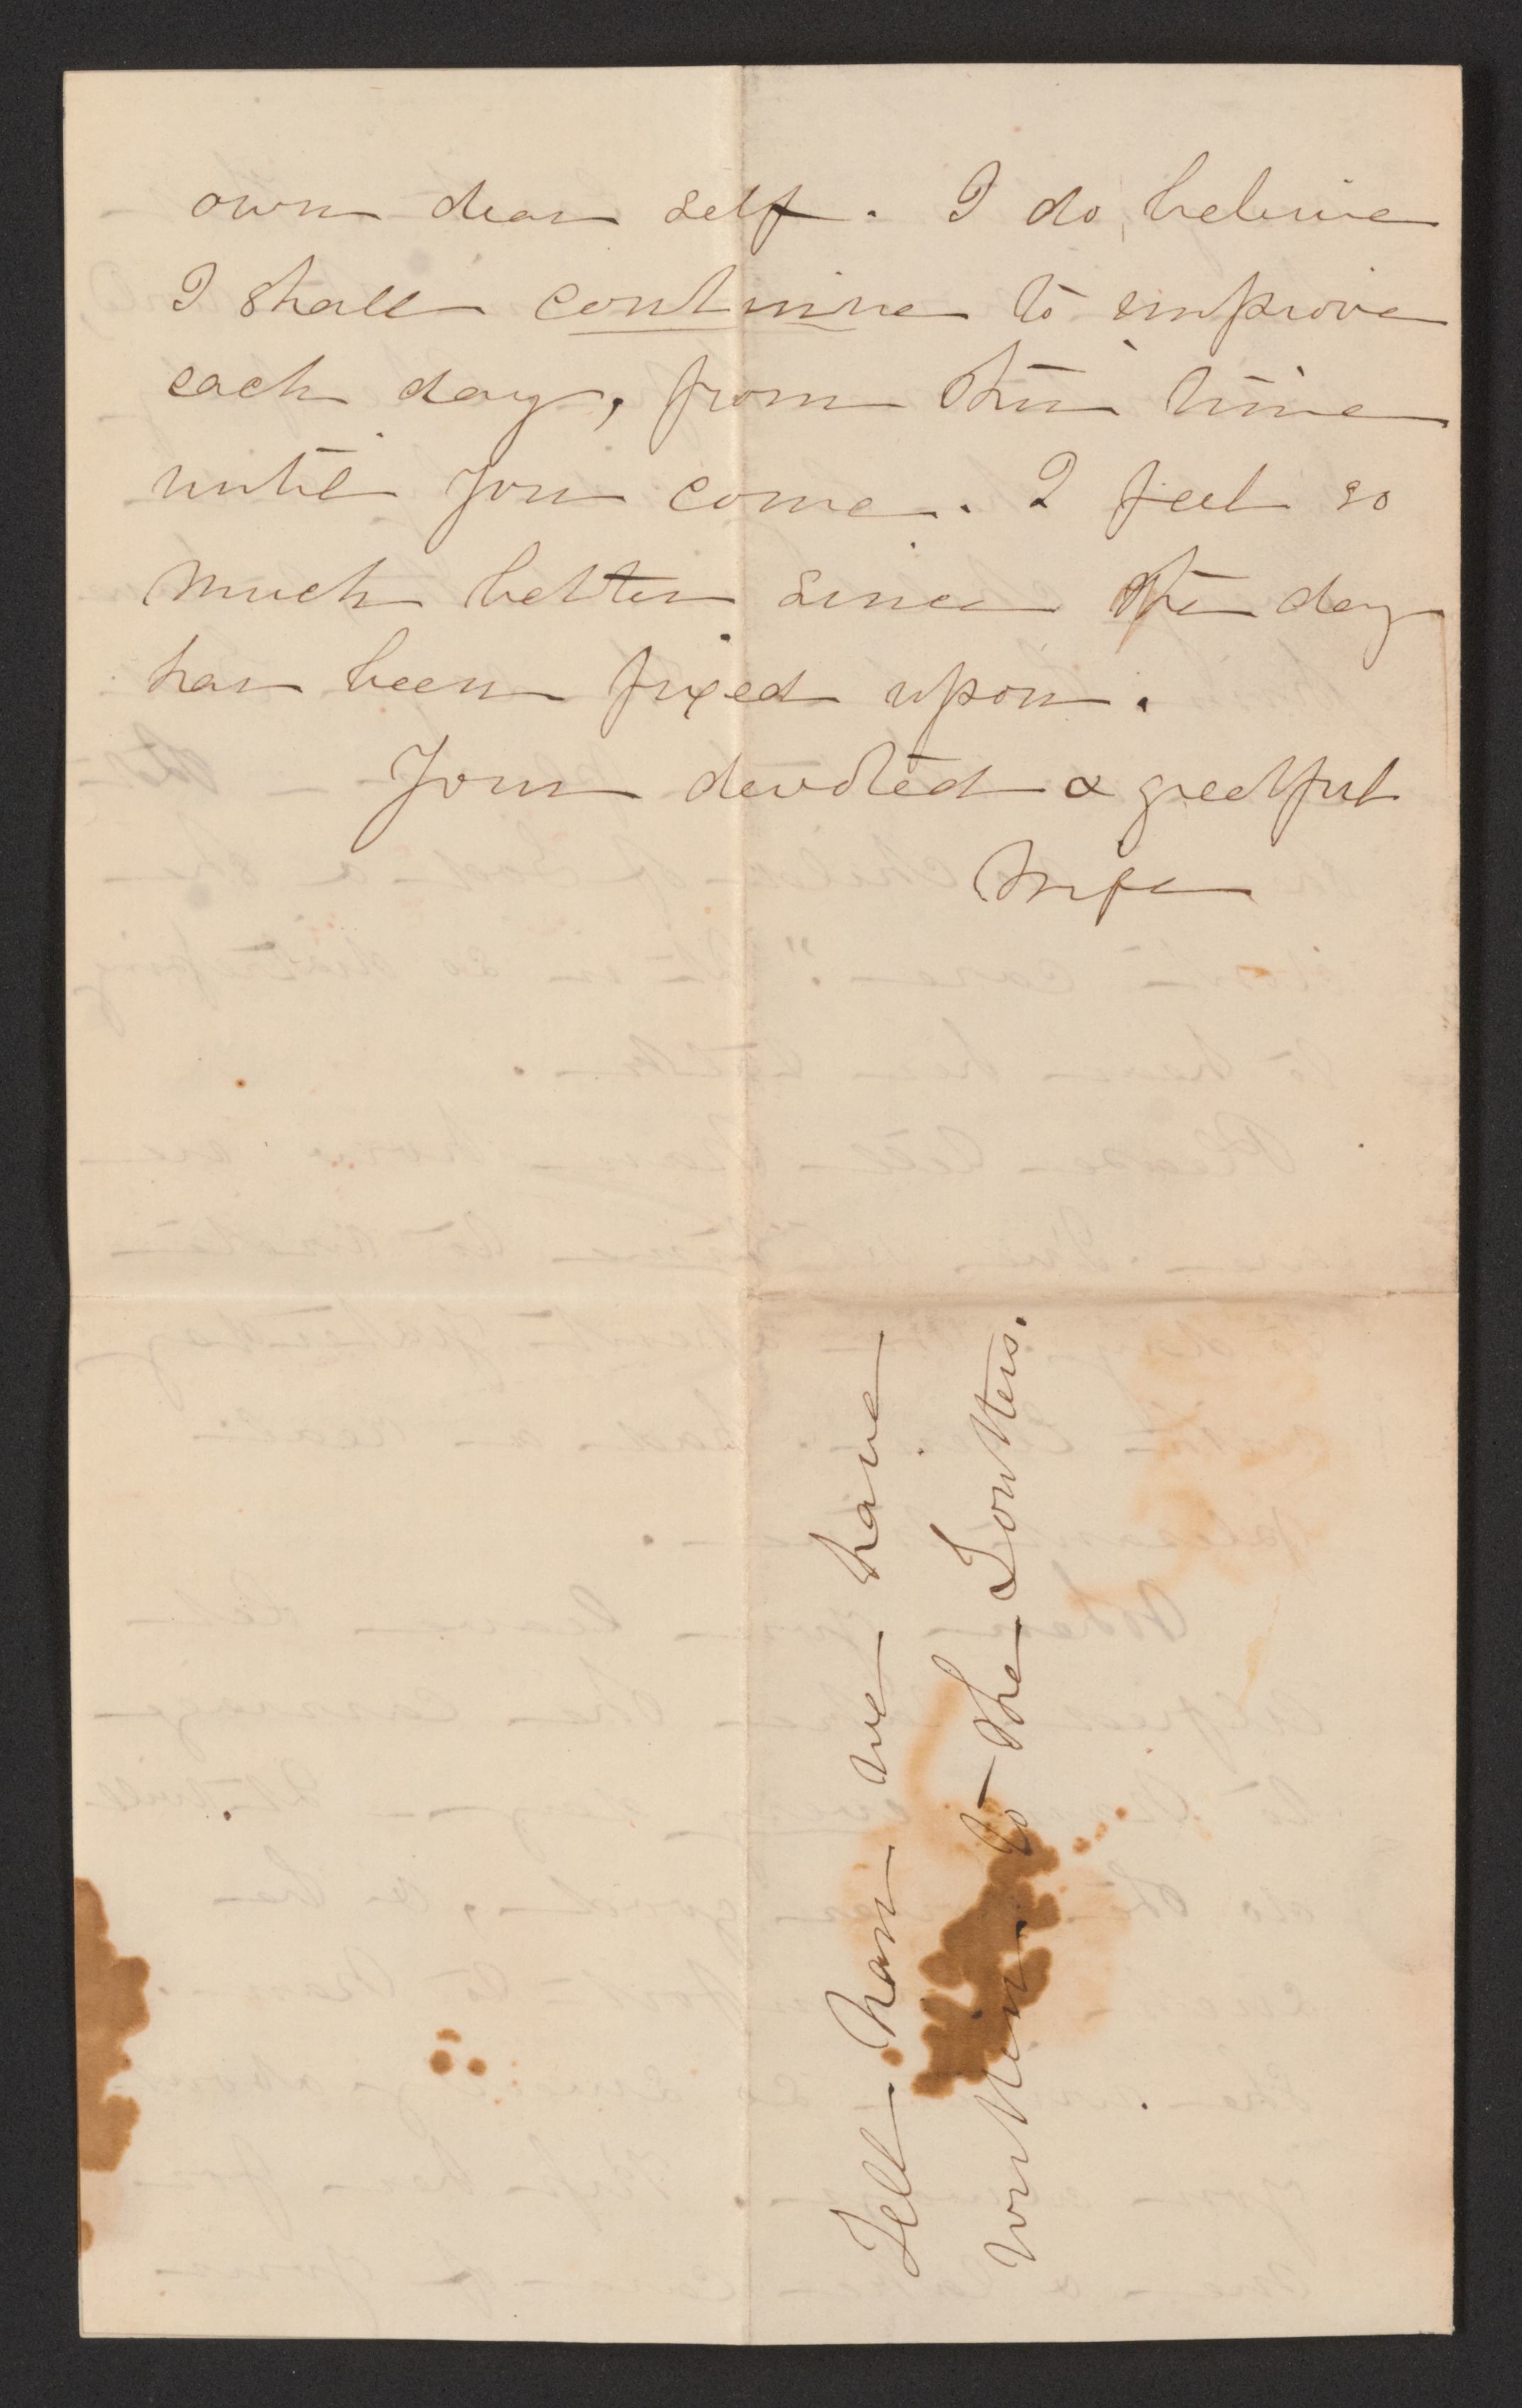 own dear self. I do believe
I shall continue to improve
each day, from this time
until you come. I feel so
much better since the day
has been fixed upon.
Your devoted & greatful
Wife
Tell Nan we have
written to the Soutters.